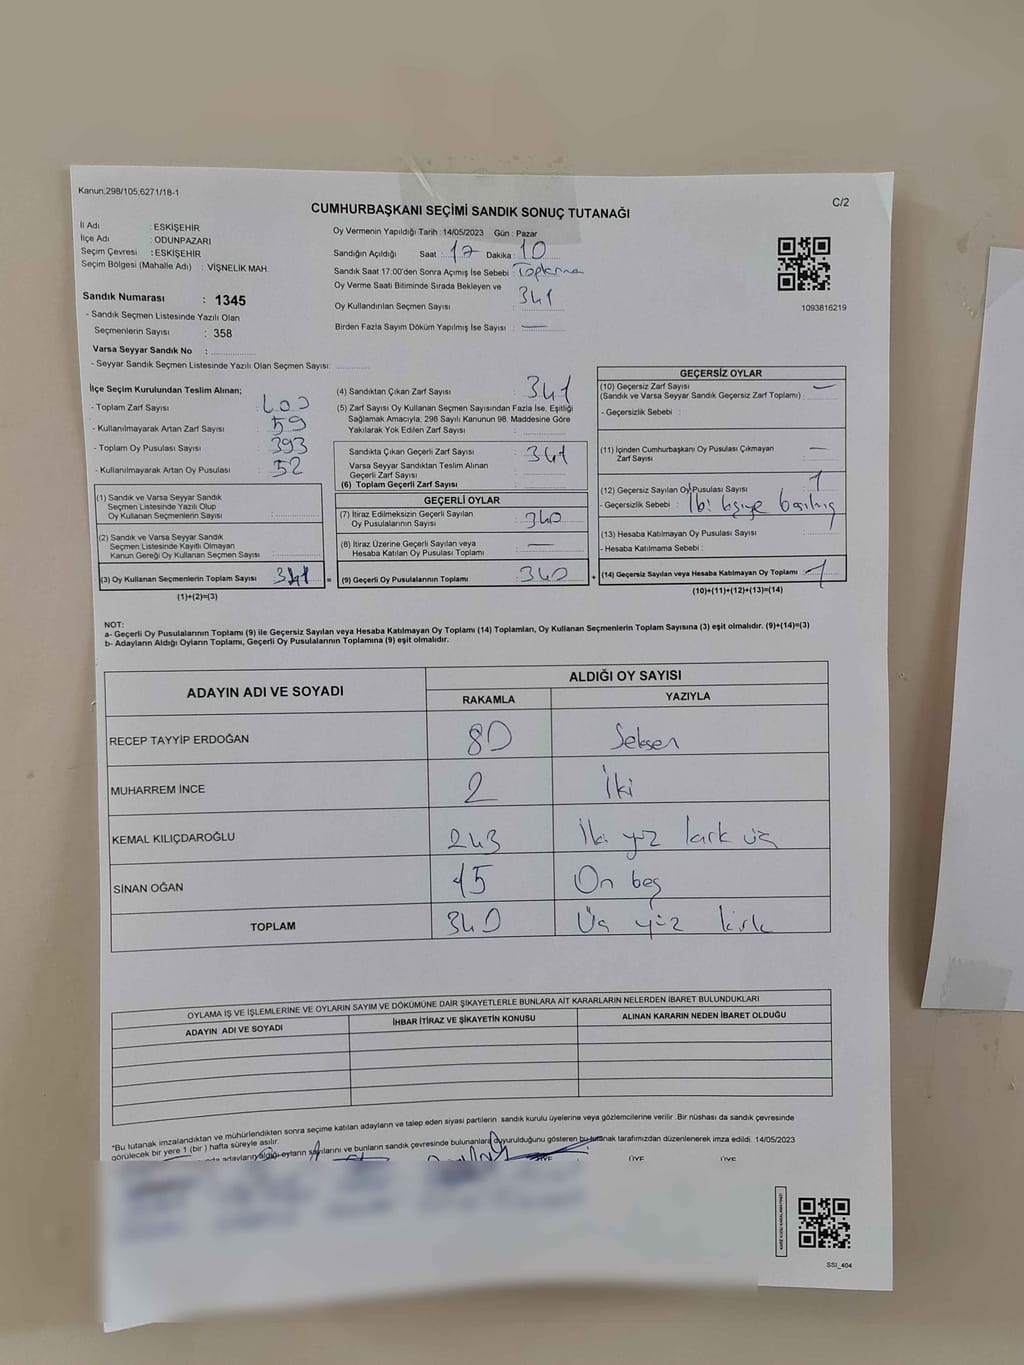 Kanun;298/105,6271/18-1
C/2
CUMHURBAŞKANI SEÇİMİ SANDIK SONUÇ TUTANAĞI
İl Adı : ESKİŞEHİR
İlçe Adı : ODUNPAZARI
Seçim Çevresi : ESKİŞEHİR
Seçim Bölgesi (Mahalle Adı) : VİŞNELİK MAH.
Sandık Numarası : 1345
- Sandık Seçmen Listesinde Yazılı Olan
Seçmenlerin Sayısı : 358
Varsa Seyyar Sandık No :
- Seyyar Sandık Seçmen Listesinde Yazılı Olan Seçmen Sayısı:
Oy Vermenin Yapıldığı Tarih : 14/05/2023 Gün : Pazar
Sandığın Açıldığı Saat : 17 Dakika : 10
Sandık Saat 17:00'den Sonra Açılmış İse Sebebi :
Oy Verme Saati Bitiminde Sırada Bekleyen ve
Oy Kullandırılan Seçmen Sayısı : 341
Birden Fazla Sayım Döküm Yapılmış İse Sayısı : —
1093816219
İlçe Seçim Kurulundan Teslim Alınan;
- Toplam Zarf Sayısı : 400
- Kullanılmayarak Artan Zarf Sayısı : 59
- Toplam Oy Pusulası Sayısı : 393
- Kullanılmayarak Artan Oy Pusulası : 52
(1) Sandık ve Varsa Seyyar Sandık
Seçmen Listesinde Yazılı Olup
Oy Kullanan Seçmenlerin Sayısı :
(2) Sandık ve Varsa Seyyar Sandık
Seçmen Listesinde Kayıtlı Olmayan
Kanun Gereği Oy Kullanan Seçmen Sayısı :
(3) Oy Kullanan Seçmenlerin Toplam Sayısı : 341 =
(1)+(2)=(3)
(4) Sandıktan Çıkan Zarf Sayısı : 341
(5) Zarf Sayısı Oy Kullanan Seçmen Sayısından Fazla İse, Eşitliği
Sağlamak Amacıyla; 298 Sayılı Kanunun 98. Maddesine Göre
Yakılarak Yok Edilen Zarf Sayısı :
Sandıkta Çıkan Geçerli Zarf Sayısı : 341
Varsa Seyyar Sandıktan Teslim Alınan
Geçerli Zarf Sayısı :
(6) Toplam Geçerli Zarf Sayısı :
GEÇERLİ OYLAR
(7) İtiraz Edilmeksizin Geçerli Sayılan
Oy Pusulalarının Sayısı : 340
(8) İtiraz Üzerine Geçerli Sayılan veya
Hesaba Katılan Oy Pusulası Toplamı : —
(9) Geçerli Oy Pusulalarının Toplamı : 340 +
GEÇERSİZ OYLAR
(10) Geçersiz Zarf Sayısı : —
(Sandık ve Varsa Seyyar Sandık Geçersiz Zarf Toplamı) :
- Geçersizlik Sebebi :
(11) İçinden Cumhurbaşkanı Oy Pusulası Çıkmayan
Zarf Sayısı : —
(12) Geçersiz Sayılan Oy Pusulası Sayısı : 1
- Geçersizlik Sebebi : basılmış
(13) Hesaba Katılmayan Oy Pusulası Sayısı :
- Hesaba Katılmama Sebebi :
(14) Geçersiz Sayılan veya Hesaba Katılmayan Oy Toplamı : 1
(10)+(11)+(12)+(13)=(14)
NOT:
a- Geçerli Oy Pusulalarının Toplamı (9) ile Geçersiz Sayılan veya Hesaba Katılmayan Oy Toplamı (14) Toplamları, Oy Kullanan Seçmenlerin Toplam Sayısına (3) eşit olmalıdır. (9)+(14)=(3)
b- Adayların Aldığı Oyların Toplamı, Geçerli Oy Pusulalarının Toplamına (9) eşit olmalıdır.
ADAYIN ADI VE SOYADI ALDIĞI OY SAYISI
RAKAMLA YAZIYLA
RECEP TAYYİP ERDOĞAN 80 Seksen
MUHARREM İNCE 2 İki
KEMAL KILIÇDAROĞLU 243 İki yüz kırk üç
SİNAN OĞAN 15 On beş
TOPLAM 340 Üç yüz kırk
OYLAMA İŞ VE İŞLEMLERİNE VE OYLARIN SAYIM VE DÖKÜMÜNE DAİR ŞİKAYETLERLE BUNLARA AİT KARARLARIN NELERDEN İBARET BULUNDUKLARI
ADAYIN ADI VE SOYADI İHBAR İTİRAZ VE ŞİKAYETİN KONUSU ALINAN KARARIN NEDEN İBARET OLDUĞU
*Bu tutanak imzalandıktan ve mühürlendikten sonra seçime katılan adayların ve talep eden siyasi partilerin sandık kurulu üyelerine veya gözlemcilerine verilir .Bir nüshası da sandık çevresinde
görülecek bir yere 1 (bir ) hafta süreyle asılır.
adayların aldığı oyların sayılarını ve bunların sandık çevresinde bulunanlara duyurulduğunu gösteren bu tutanak tarafımızdan düzenlenerek imza edildi. 14/05/2023
ÜYE ÜYE ÜYE
SSI_404